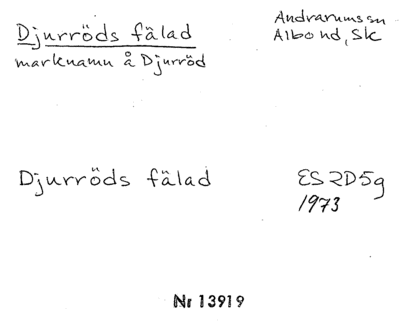 Djurröds fälad
marknamn å Djurröd
Andrarums sn
Albo hd, Sk
Djurröds fälad
ES 2D5g
1973
Nr 13919